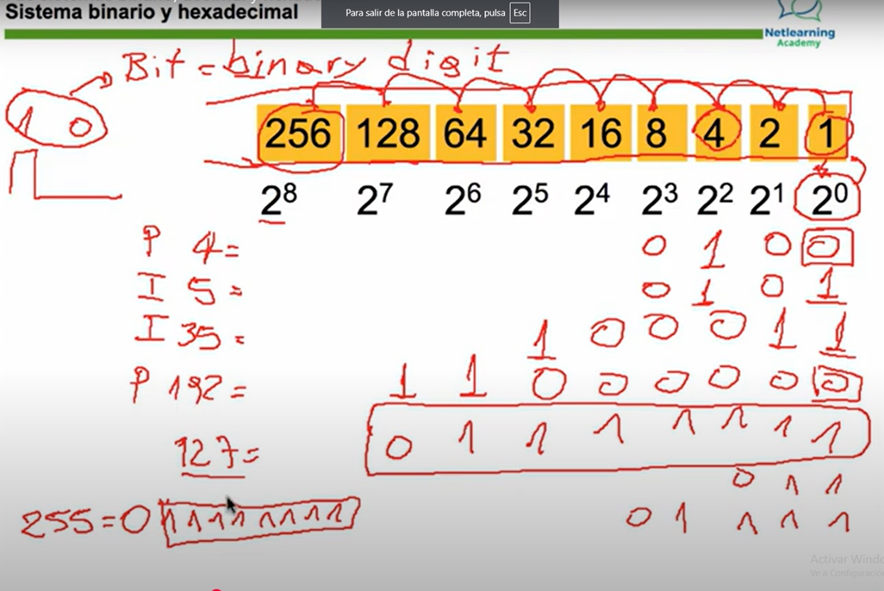 Sistema binario y hexadecimal
Para salir de la pantalla completa, pulsa Esc
Netlearning
Academy
Bit = binary digit
1 0
256 128 64 32 16 8 4 2 1
2⁸ 2⁷ 2⁶ 2⁵ 2⁴ 2³ 2² 2¹ 2⁰
P 4= 0 1 0 0
I 5= 0 1 0 1
I 35= 1 0 0 0 1 1
P 192= 1 1 0 0 0 0 0 0
127= 0 1 1 1 1 1 1 1
0 1 1
255=0 1 1 1 1 1 1 1 1 0 1 1 1 1
Activar Windo
Ve a Configuració